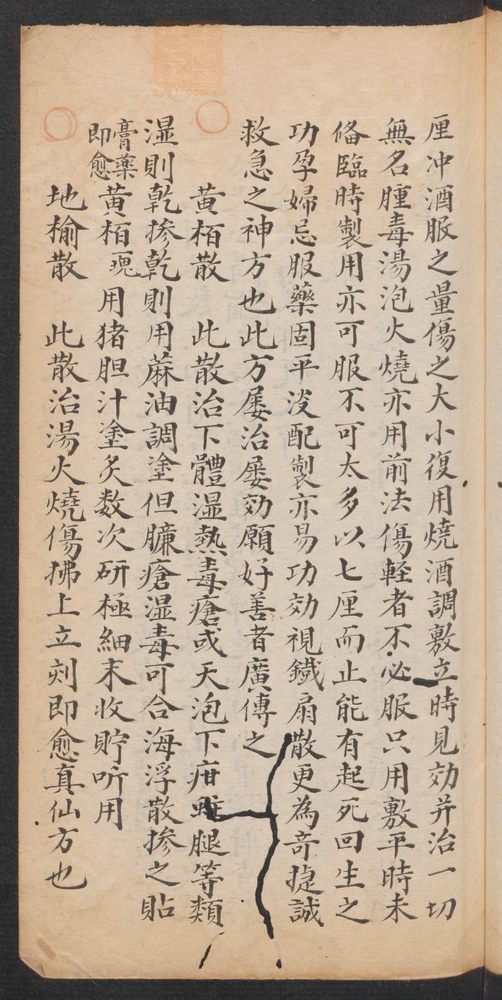 厘冲酒服之量傷之大小復用燒酒調敷立時見効并治一切
無名腫毒湯泡火燒亦用前法傷輕者不必服只用敷平時未
俻臨時製用亦可服不可太多以七厘而止能有起死回生之
功孕婦忌服藥固平淡配製亦易功効視鐵扇散更為竒捷誠
救急之神方也此方屡治屡効願好善者廣傳之
黄栢散 此散治下體湿熱毒瘡或天泡下疳蛀腿等類
湿則乾掺乾則用蔴油調塗但臁瘡湿毒可合海浮散掺之貼
膏藥即愈黄栢塊用猪胆汁塗炙数次研極細末收貯听用
地榆散 此散治湯火燒傷拂上立刻即愈真仙方也